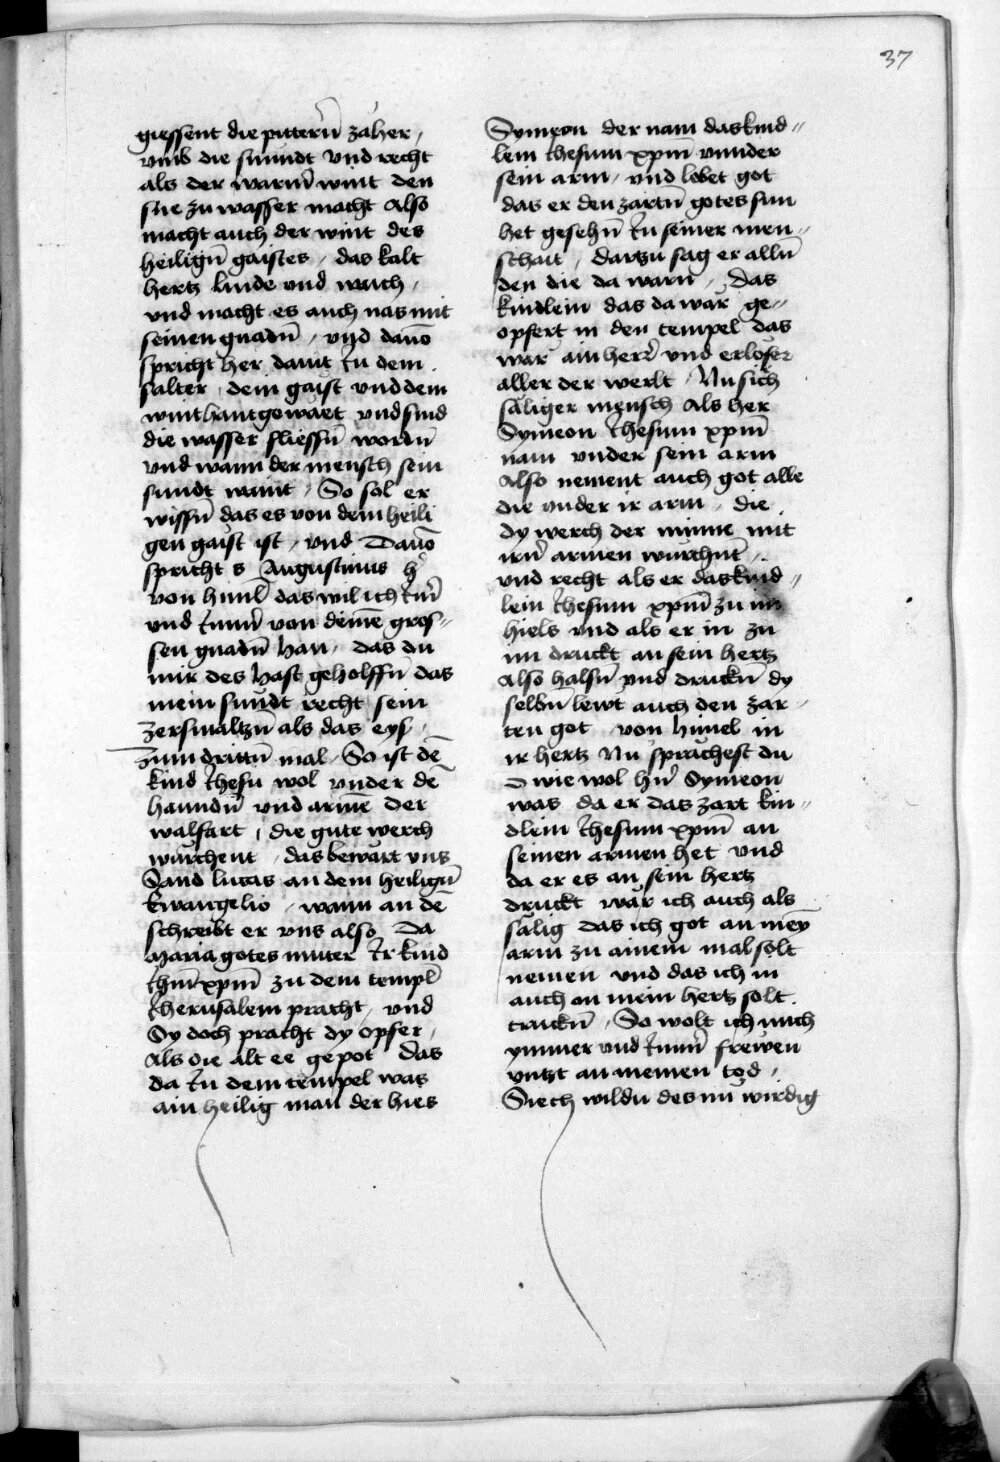 37
giessent die pittern̄ zäher /
vmb die sunndt vnd recht
als der warm̄ wint den
sne zu wasser macht Also
macht auch der wint des
heilign̄ gaistes / das kalt
hertz linde vnd waich /
vnd macht es auch nas mit
seinen gnadn̄ / vnd dauō
spricht her dauit In dem
salter / dem gaist vnd dem
wint hant gewäet vnd sind
die wasser fliessn̄ wordn̄
vnd wann der mensch sein
sundt waint / So sol er
wissn̄ das es von dem heili
gen gaist ist / vnd Dauō
spricht s Augustinus h̄
von himl̄ das wil ich Im̄
vnd Imm̄ von deinē gros-
sen gnadn̄ han / das du
mir des hast geholffn̄ das
mein sundt recht sein
zersmaltzn̄ als das eys /
Zum drittn̄ mal / So ist dē
kind Ihesu wol vnder dē
hanndn̄ vnd armē der
walfart / die gute werch
würchent / das bewärt vns
Sand lucas an dem heilign̄
Ewangelio / wann an dē
schreibt er vns also Da
Maria gotes muter Ir kind
Ihm̄ xpm̄ zu dem templ̄
Iherusalem pracht / vnd
Sy doch pracht dy opfer /
Als die alt ee gepot das
da In dem tempel was
ain heilig man der hies
Symeon der nam das kind-
lein Ihesum xpm̄ vnnder
sein arm / vnd lobet got
das er den zartn̄ gotes sun
het gesehn̄ In seiner men-
schait / dartzu sag er alln̄
den die da warn / das
kindlein das da war ge-
opfert in den tempel das
war ain herr̄ vnd erlöser
aller der werlt / Nu sich
säliger mensch Als her
Symeon Ihesum xpm̄
nam vnder sein arm
Also nement auch got alle
die vnder ir arm / die
dy werch der minne mit
irn̄ armen würchnt /
vnd recht als er das kind-
lein Ihesum xpm̄ zu im
hiels vnd als er in zu
im druckt an sein hertz
Also halsn̄ vnd druckn̄ dy
selbn̄ lewt auch den zar-
ten got von himel in
ir hertz Nu sprächest du
O wie wol hn̄ Symeon
was da er das zart kin-
dlein Ihesum xpm̄ an
seinen armen het vnd
da er es an sein hertz
druckt wär ich auch als
sälig das ich got an meȳ
arm zu ainem mal solt
nemen vnd das ich in
auch an mein hertz solt
truckn̄ / So wolt ich mich
ymmer vnd Imm̄ frewen
vntzt an meinen tod /
Siech wildu des nu wirdig